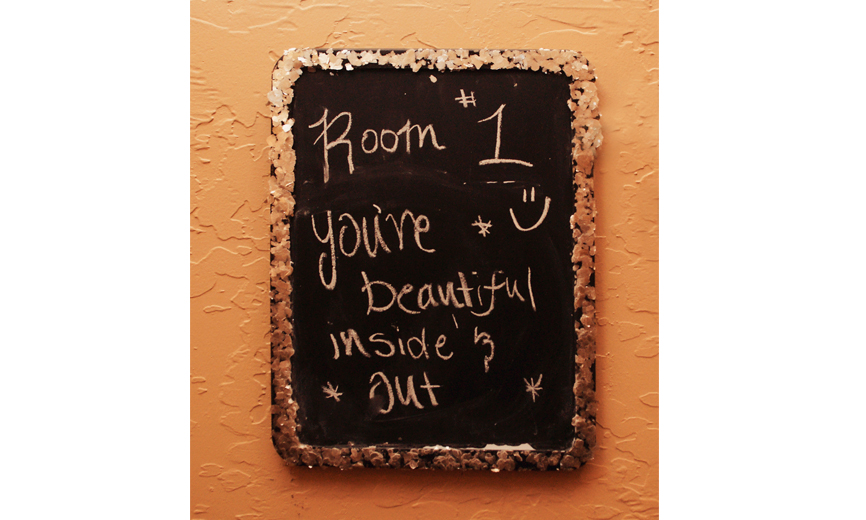 Room #1
you're
beautiful
inside &
out